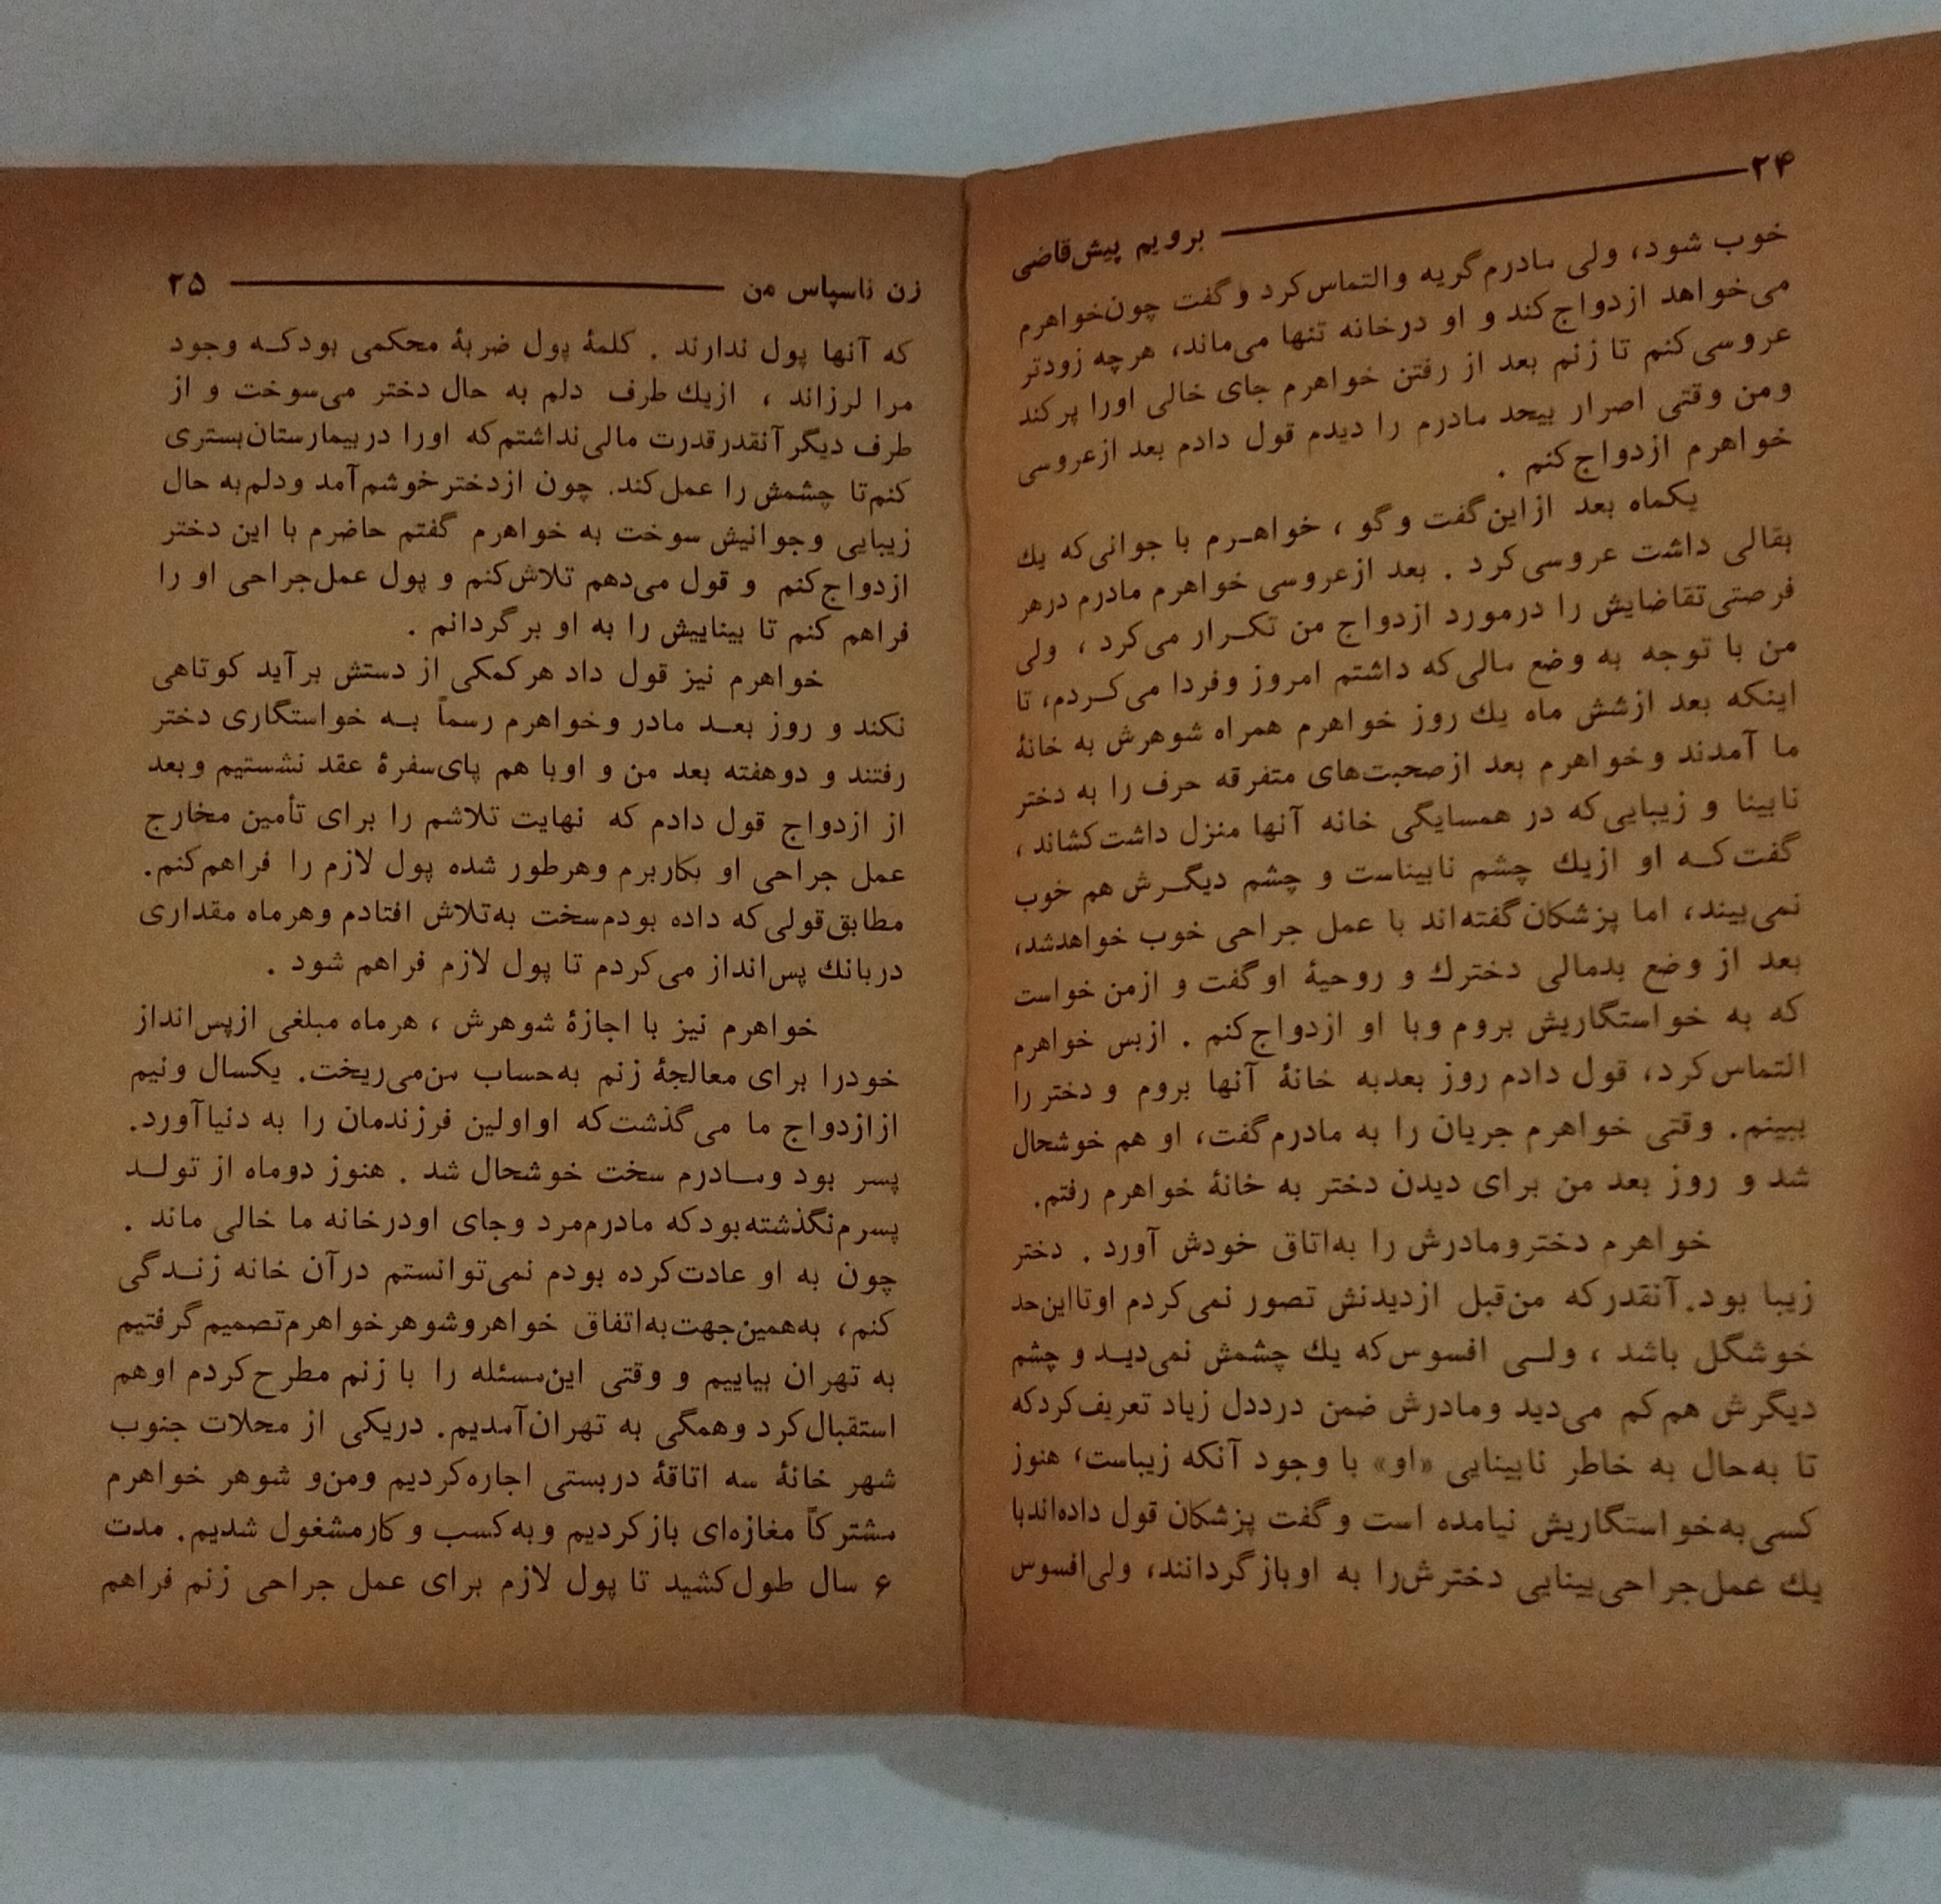 ۲۴
برویم پیش‌قاضی
خوب شود، ولی مادرم گریه والتماس کرد و گفت چون خواهرم
می‌خواهد ازدواج کند و او درخانه تنها می‌ماند، هرچه زودتر
عروسی کنم تا زنم بعد از رفتن خواهرم جای خالی اورا پرکند
ومن وقتی اصرار بیحد مادرم را دیدم قول دادم بعد ازعروسی
خواهرم ازدواج کنم .
یکماه بعد ازاین گفت و گو ، خواهـرم با جوانی که یك
بقالی داشت عروسی کرد . بعد ازعروسی خواهرم مادرم درهر
فرصتی تقاضایش را درمورد ازدواج من تکـرار می‌کرد ، ولی
من با توجه به وضع مالی که داشتم امروز وفردا می‌کـردم، تا
اینکه بعد ازشش ماه یك روز خواهرم همراه شوهرش به خانهٔ
ما آمدند وخواهرم بعد ازصحبت‌های متفرقه حرف را به دختر
نابینا و زیبایی که در همسایگی خانه آنها منزل داشت کشاند ،
گفت کـه او ازیك چشم نابیناست و چشم دیگـرش هم خوب
نمی‌بیند، اما پزشکان گفته‌اند با عمل جراحی خوب خواهدشد،
بعد از وضع بدمالی دخترك و روحیهٔ اوگفت و ازمن خواست
که به خواستگاریش بروم وبا او ازدواج کنم . ازبس خواهرم
التماس کرد، قول دادم روز بعدبه خانهٔ آنها بروم و دختر را
ببینم. وقتی خواهرم جریان را به مادرم گفت، او هم خوشحال
شد و روز بعد من برای دیدن دختر به خانهٔ خواهرم رفتم.
خواهرم دخترومادرش را به‌اتاق خودش آورد . دختر
زیبا بود. آنقدرکه من‌قبل ازدیدنش تصور نمی‌کردم اوتااین‌حد
خوشگل باشد ، ولـی افسوس که یك چشمش نمی‌دیـد و چشم
دیگرش هم کم می‌دید ومادرش ضمن درددل زیاد تعریف کردکه
تا به‌حال به خاطر نابینایی «او» با وجود آنکه زیباست، هنوز
کسی به‌خواستگاریش نیامده است و گفت پزشکان قول داده‌اندبا
یك عمل‌جراحی‌بینایی دخترش‌را به اوبازگردانند، ولی‌افسوس
زن ناسپاس من
۲۵
که آنها پول ندارند . کلمهٔ پول ضربهٔ محکمی بودکـه وجود
مرا لرزاند ، ازیك طرف دلم به حال دختر می‌سوخت و از
طرف دیگر آنقدرقدرت مالی نداشتم که اورا دربیمارستان‌بستری
کنم‌تا چشمش را عمل کند. چون ازدخترخوشم‌آمد ودلم‌به حال
زیبایی وجوانیش سوخت به خواهرم گفتم حاضرم با این دختر
ازدواج کنم و قول می‌دهم تلاش‌کنم و پول عمل‌جراحی او را
فراهم کنم تا بیناییش را به او برگردانم .
خواهرم نیز قول داد هرکمکی از دستش برآید کوتاهی
نکند و روز بعـد مادر وخواهرم رسماً بـه خواستگاری دختر
رفتند و دوهفته بعد من و اوبا هم پای‌سفرهٔ عقد نشستیم وبعد
از ازدواج قول دادم که نهایت تلاشم را برای تأمین مخارج
عمل جراحی او بکاربرم وهرطور شده پول لازم را فراهم‌کنم.
مطابق‌قولی‌که داده بودم‌سخت به‌تلاش افتادم وهرماه مقداری
دربانك پس‌انداز می‌کردم تا پول لازم فراهم شود .
خواهرم نیز با اجازهٔ شوهرش ، هرماه مبلغی ازپس‌انداز
خودرا برای معالجهٔ زنم به‌حساب من‌می‌ریخت. یکسال ونیم
ازازدواج ما می‌گذشت‌که اواولین فرزندمان را به دنیاآورد.
پسر بود ومـادرم سخت خوشحال شد . هنوز دوماه از تولـد
پسرم‌نگذشته‌بودکه مادرم‌مرد وجای اودرخانه ما خالی ماند .
چون به او عادت‌کرده بودم نمی‌توانستم درآن خانه زنـدگی
کنم، به‌همین‌جهت‌به‌اتفاق خواهروشوهرخواهرم‌تصمیم‌گرفتیم
به تهران بیاییم و وقتی این‌مسئله را با زنم مطرح‌کردم اوهم
استقبال‌کرد وهمگی به تهران‌آمدیم. دریکی از محلات جنوب
شهر خانهٔ سه اتاقهٔ دربستی اجاره‌کردیم ومن‌و شوهر خواهرم
مشترکاً مغازه‌ای بازکردیم وبه‌کسب و کارمشغول شدیم. مدت
۶ سال طول‌کشید تا پول لازم برای عمل جراحی زنم فراهم